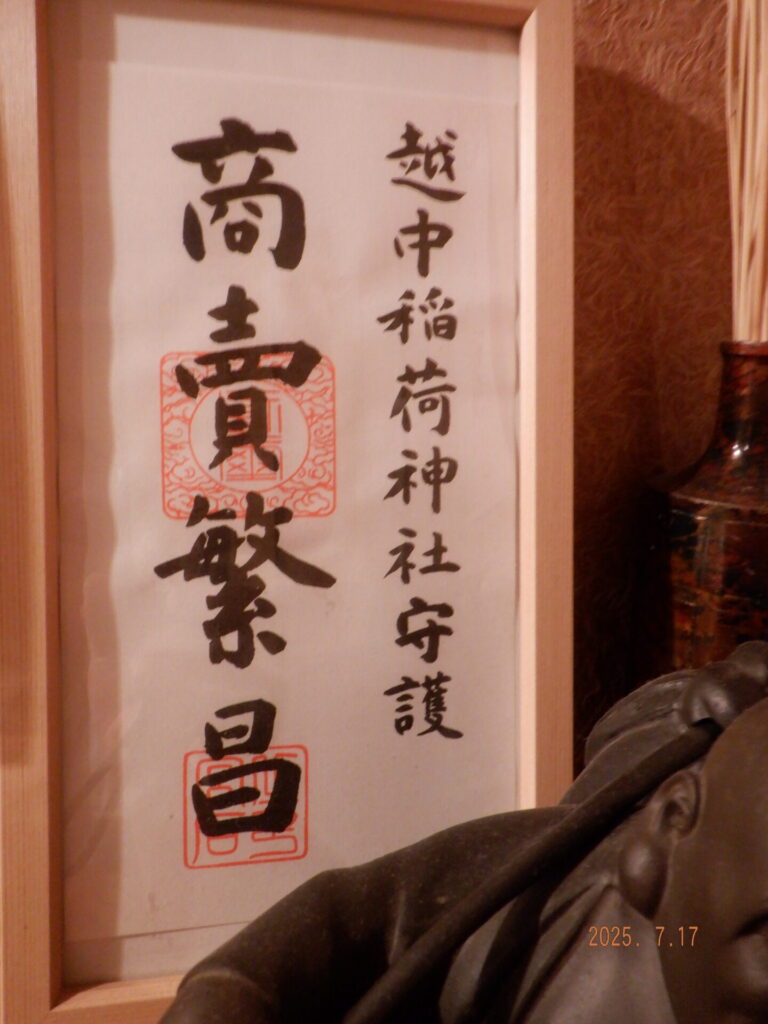 越中稲荷神社守護
商賣繁昌
2025. 7.17